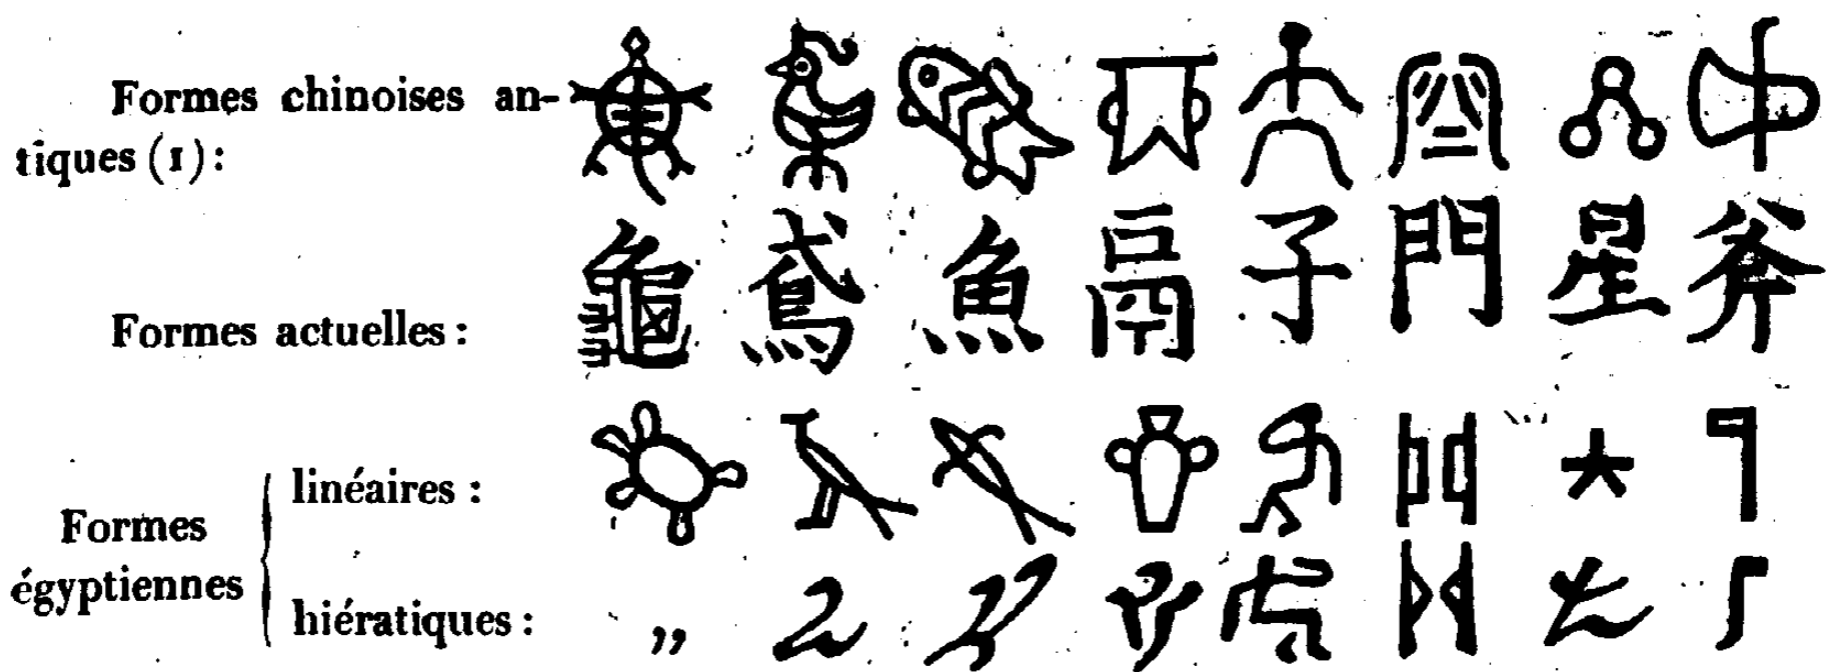 Formes chinoises an-
tiques (1):
Formes actuelles: 龜 鳶 魚 鬲 子 門 星 斧
Formes égyptiennes
linéaires :
hiératiques : „